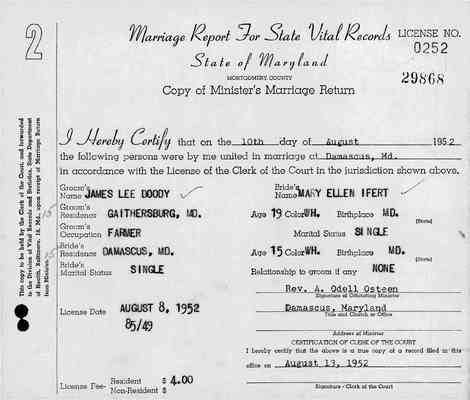 2
Marriage Report For State Vital Records
LICENSE NO.
0252
State of Maryland
MONTGOMERY COUNTY
29868
Copy of Minister's Marriage Return
This copy to be held by the Clerk of the Court, and forwarded
to the Division of Vital Records and Statistics, State Department
of Health, Baltimore, 18, Md., upon receipt of Marriage Return
from Minister.
I Hereby Certify that on the 10th day of August 1952
the following persons were by me united in marriage at Damascus, Md.
in accordance with the License of the Clerk of the Court in the jurisdiction shown above.
Groom's Name JAMES LEE DOODY
Bride's Name MARY ELLEN IFERT
Groom's Residence GAITHERSBURG, MD.
Age 19 Color WH. Birthplace MD.
(State)
Groom's Occupation FARMER
Marital Status SINGLE
Bride's Residence DAMASCUS, MD.
Age 15 Color WH. Birthplace MD.
(State)
Bride's Marital Status SINGLE
Relationship to groom if any NONE
Rev. A. Odell Osteen
Signature of Officiating Minister
License Date AUGUST 8, 1952
85/49
Damascus, Maryland
Title and Church or Office
Address of Minister
CERTIFICATION OF CLERK OF THE COURT
I hereby certify that the above is a true copy of a record filed in this
office on August 13, 1952
License Fee- Resident $ 4.00
Non-Resident $
Signature - Clerk of the Court